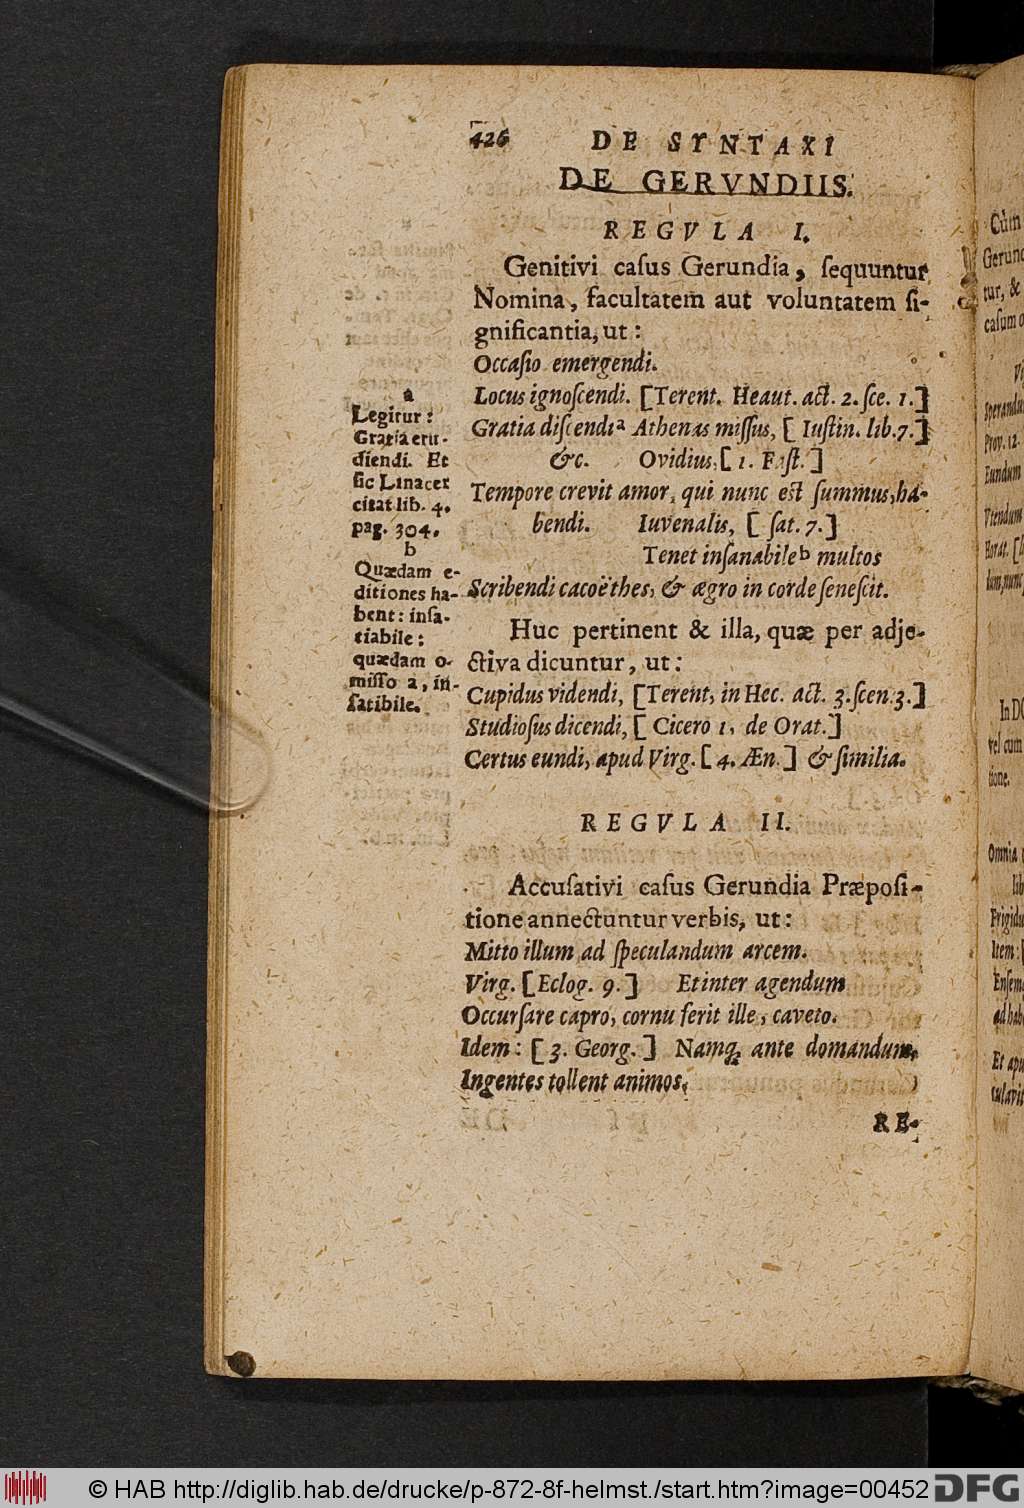 426 DE SYNTAXI
DE GERVNDIIS.
REGVLA I.
Genitivi caſus Gerundia, ſequuntur
Nomina, facultatem aut voluntatem ſi-
gnificantia, ut:
Occaſio emergendi.
Locus ignoſcendi. [Terent. Heaut. act. 2. ſce. 1.]
Gratia diſcendi a Athenas miſſus, [Iuſtin. lib. 7.]
&c. Ovidius, [1. Faſt.]
Tempore crevit amor, qui nunc est ſummus, ha-
bendi. Iuvenalis, [ſat. 7.]
Tenet inſanabile b multos
Scribendi cacoëthes, & ægro in corde ſeneſcit.
Huc pertinent & illa, quæ per adje-
ctiva dicuntur, ut:
Cupidus videndi, [Terent, in Hec. act. 3. ſcen. 3.]
Studioſus dicendi, [Cicero 1, de Orat.]
Certus eundi, apud Virg. [4. Æn.] & ſimilia.
REGVLA II.
Accuſativi caſus Gerundia Præpoſi-
tione annectuntur verbis, ut:
Mitto illum ad ſpeculandum arcem.
Virg. [Eclog. 9.] Et inter agendum
Occurſare capro, cornu ferit ille, caveto.
Idem: [3. Georg.] Namq; ante domandum,
Ingentes tollent animos,
RE-
a
Legitur:
Gratia eru-
diendi. Et
ſic Linacer
citat lib. 4.
pag. 304.
b
Quædam e-
ditiones ha-
bent: inſa-
tiabile:
quædam o-
miſſo a, in-
ſatibile.
Cùm
Gerund
tur, &
caſum o
Sperandu
Prov. 12.
Eundum
Vtendum
Horat.
In DO
vel cum
tione.
Omnia
lib
Frigidu
Item:
Enſem
ad hab
Et apu
© HAB http://diglib.hab.de/drucke/p-872-8f-helmst./start.htm?image=00452 DFG